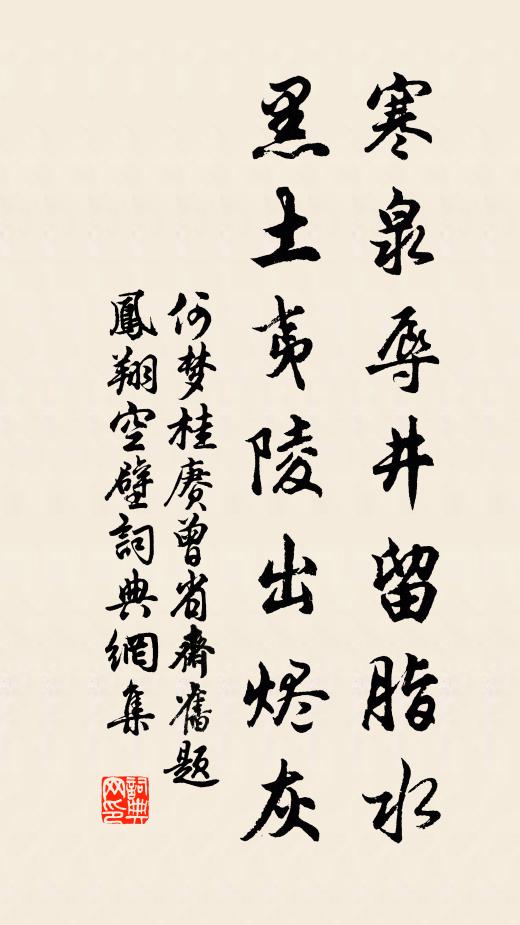 寒泉辱井留脂水
黑土夷陵出烬灰
何梦桂赓曾省斋舊题
鳳翔空壁詞典網集
詞典
网印